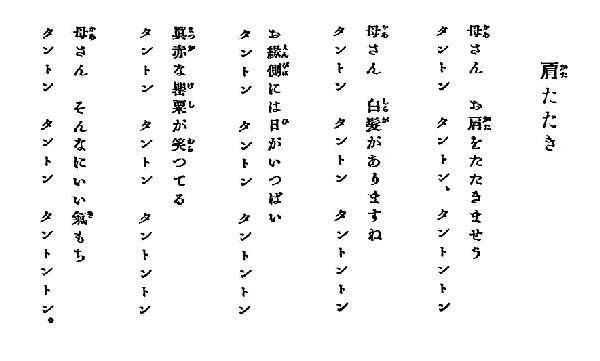 肩たたき
母さん　お肩をたたきませう
タントン　タントン、タントントン
母さん　白髮がありますね
タントン　タントン　タントントン
お緣側には日がいつぱい
タントン　タントン　タントントン
眞赤な罌粟が笑つてる
タントン　タントン　タントントン
母さん　そんなにいい氣もち
タントン　タントン　タントントン。